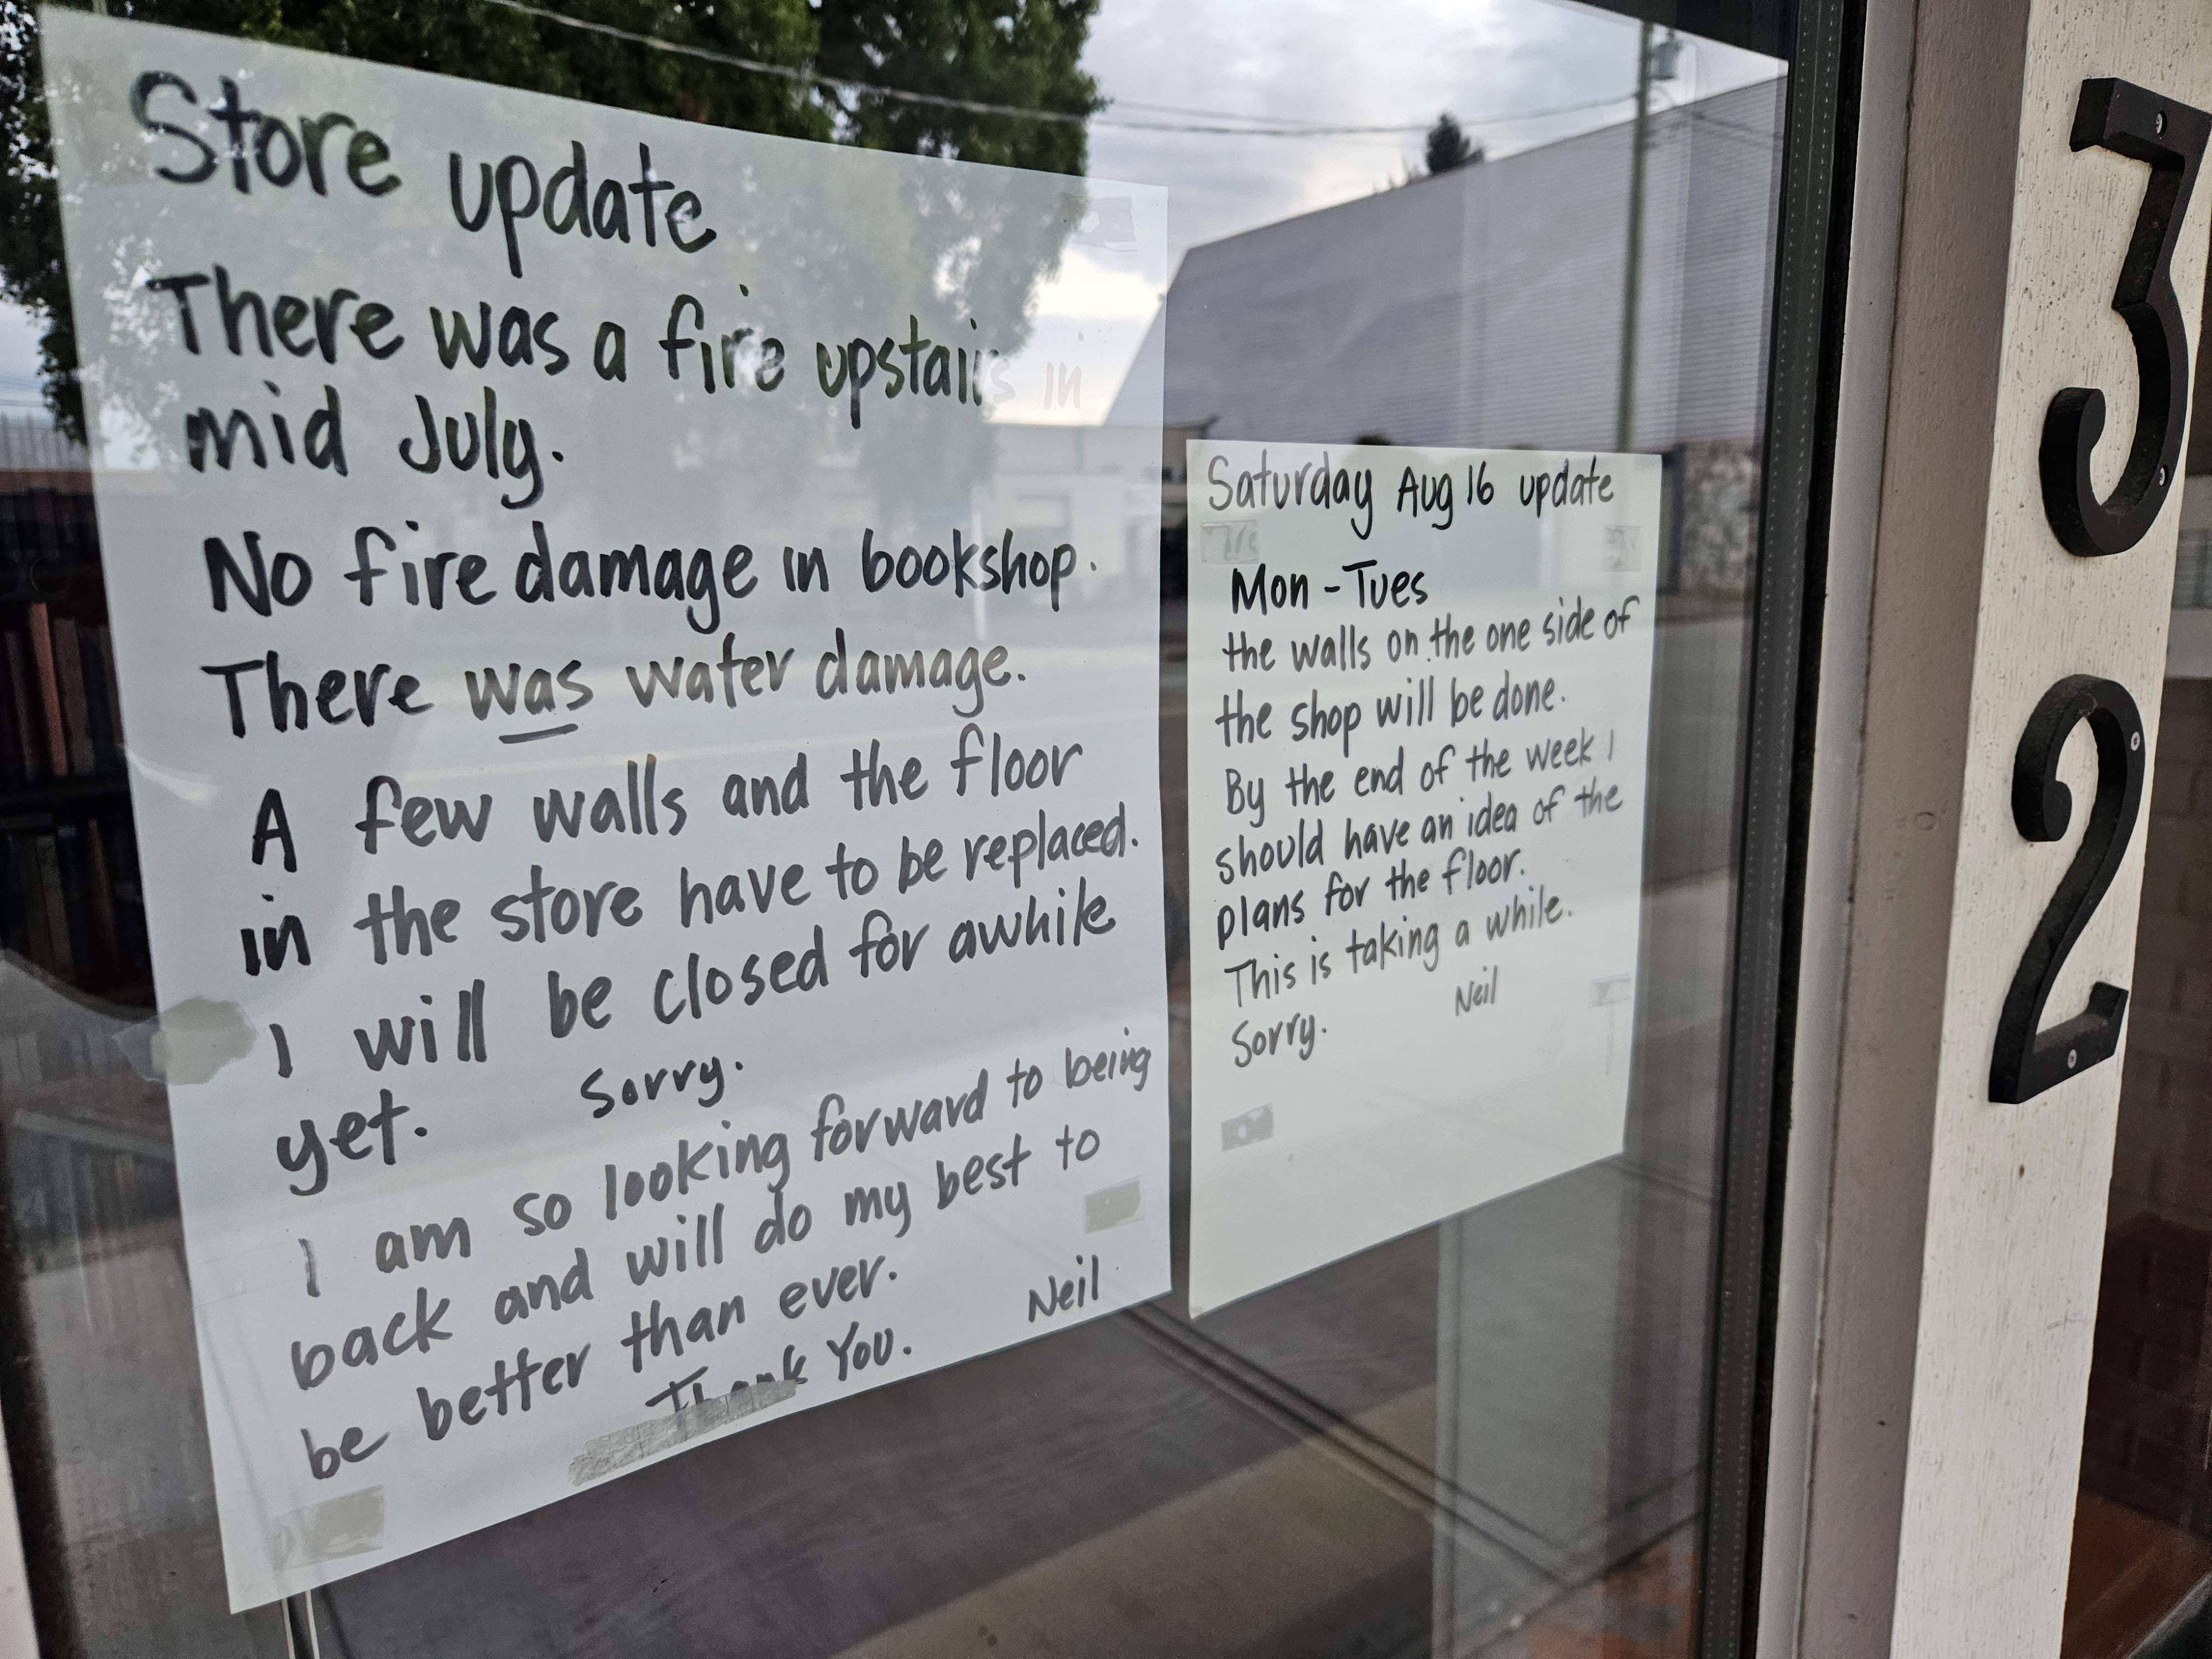 Store update
There was a fire upstairs in
mid July.
No fire damage in bookshop.
There was water damage.
A few walls and the floor
in the store have to be replaced.
I will be closed for awhile
yet. Sorry.
I am so looking forward to being
back and will do my best to
be better than ever.
Thank You. Neil
Saturday Aug 16 update
Mon - Tues
the walls on the one side of
the shop will be done.
By the end of the week I
should have an idea of the
plans for the floor.
This is taking a while.
Sorry. Neil
3
2